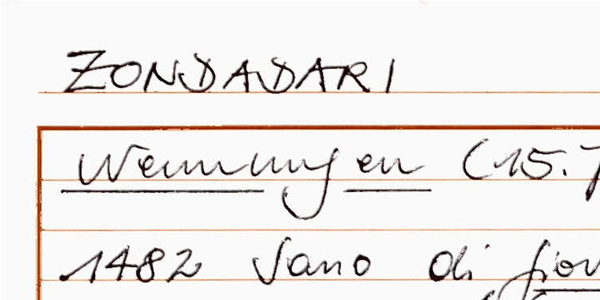 ZONDADARI
Nennungen (15.J
1482 Sano di Giov